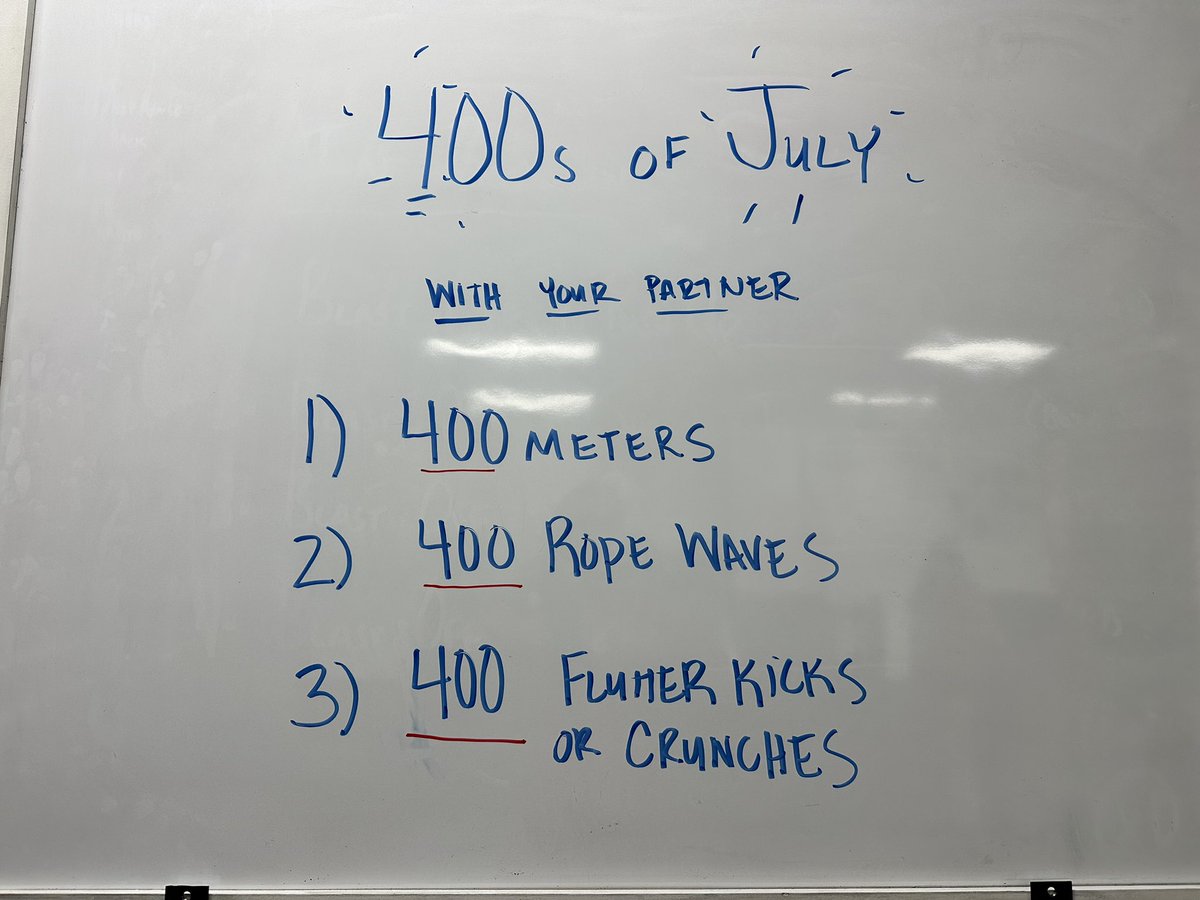 400s OF JULY
WITH YOUR PARTNER
1) 400 METERS
2) 400 ROPE WAVES
3) 400 FLUTTER KICKS
OR CRUNCHES